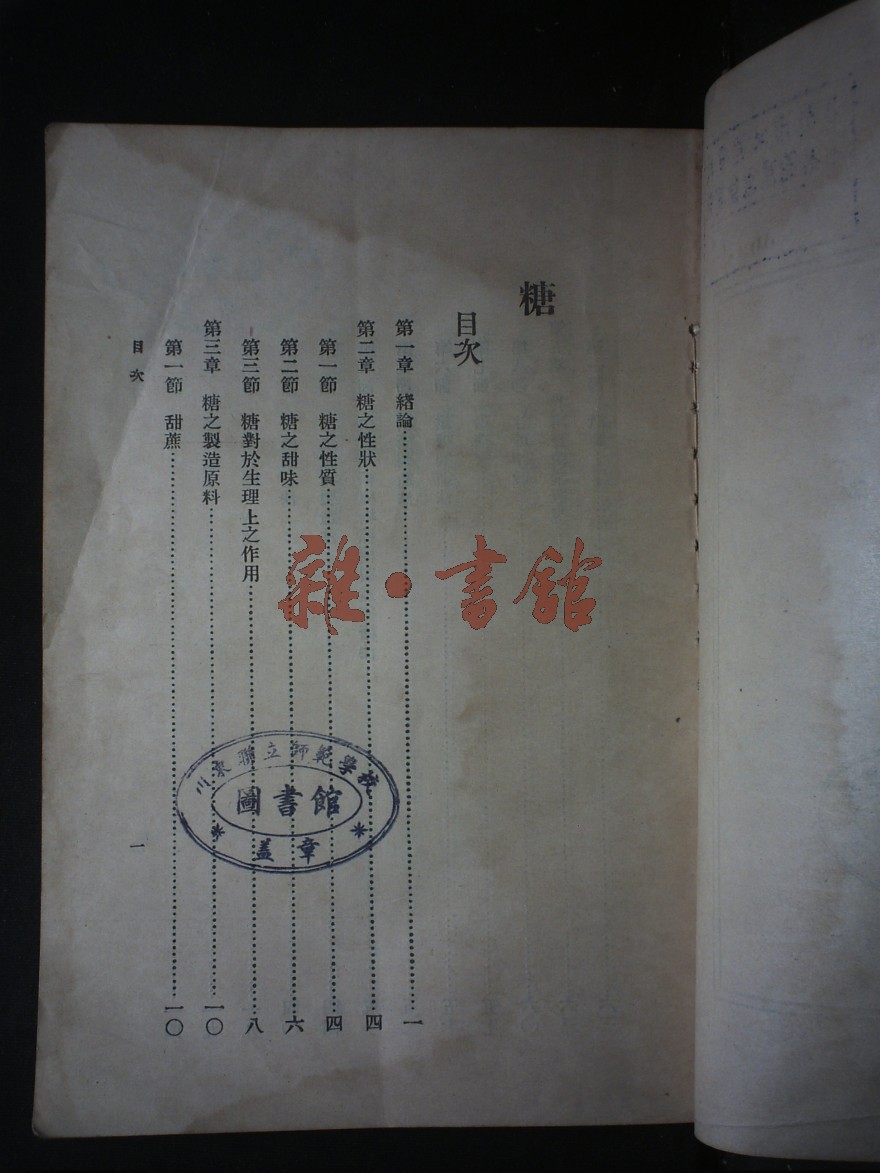 糖
目次
第一章 緒論……一
第二章 糖之性狀……四
第一節 糖之性質……四
第二節 糖之甜味……六
第三節 糖對於生理上之作用……八
第三章 糖之製造原料……一〇
第一節 甜蔗……一〇
目次
一
雜·書館
川東聯立師範學校
圖書館
蓋章